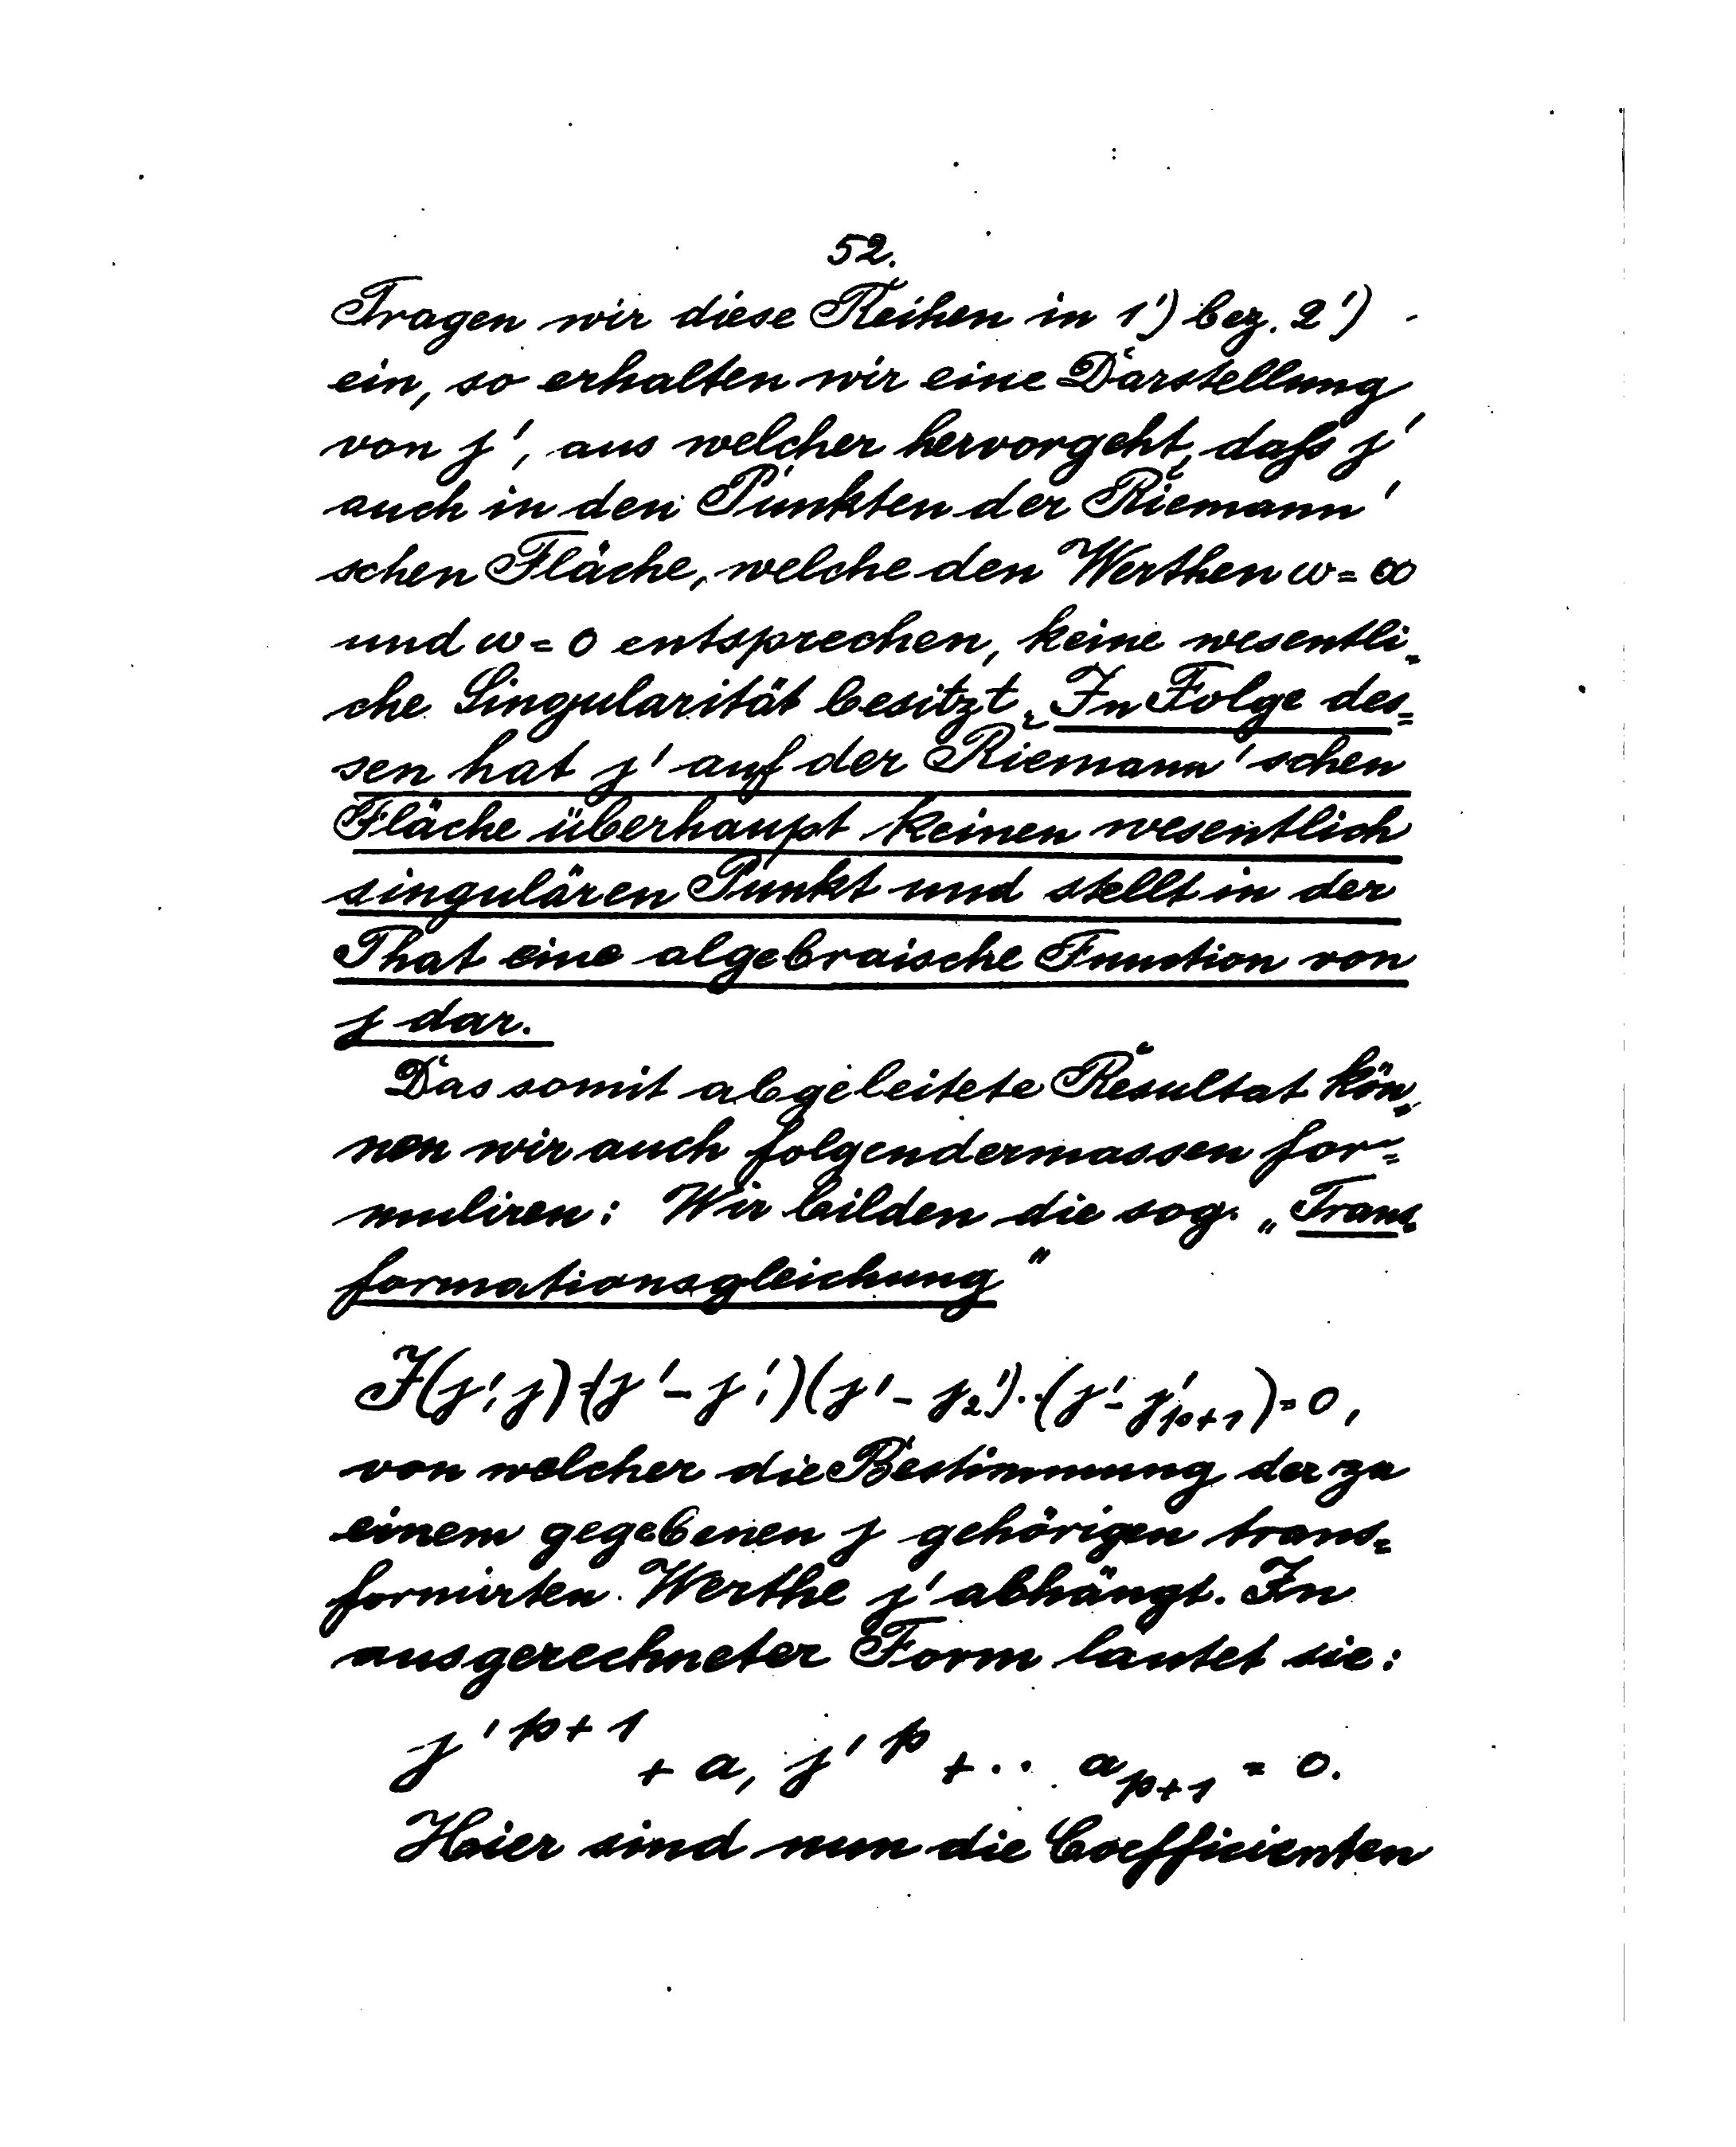 52.
Tragen wir diese Reihen in 1') bez. 2')
ein, so erhalten wir eine Darstellung
von j', aus welcher hervorgeht, daſs j'
auch in den Punkten der Riemann'
schen Fläche, welche den Werthen ω = ∞
und ω = 0 entsprechen, keine wesentli=
che Singularität besitzt. In Folge des=
sen hat j' auf der Riemann'schen
Fläche überhaupt keinen wesentlich
singulären Punkt und stellt in der
That eine algebraische Function von
j dar.
Das somit abgeleitete Resultat kön=
nen wir auch folgendermassen for=
muliren: Wir bilden die sog. „Trans=
formationsgleichung"
F(j', j) = (j' - j'₁)(j' - j₂')··(j' - j'ₚ₊₁) = 0,
von welcher die Bestimmung der zu
einem gegebenen j gehörigen trans=
formirten Werthe j' abhängt. In
ausgerechneter Form lautet sie:
j'ᵖ⁺¹ + a₁ j'ᵖ + ·· aₚ₊₁ = 0.
Hier sind nun die Coefficienten